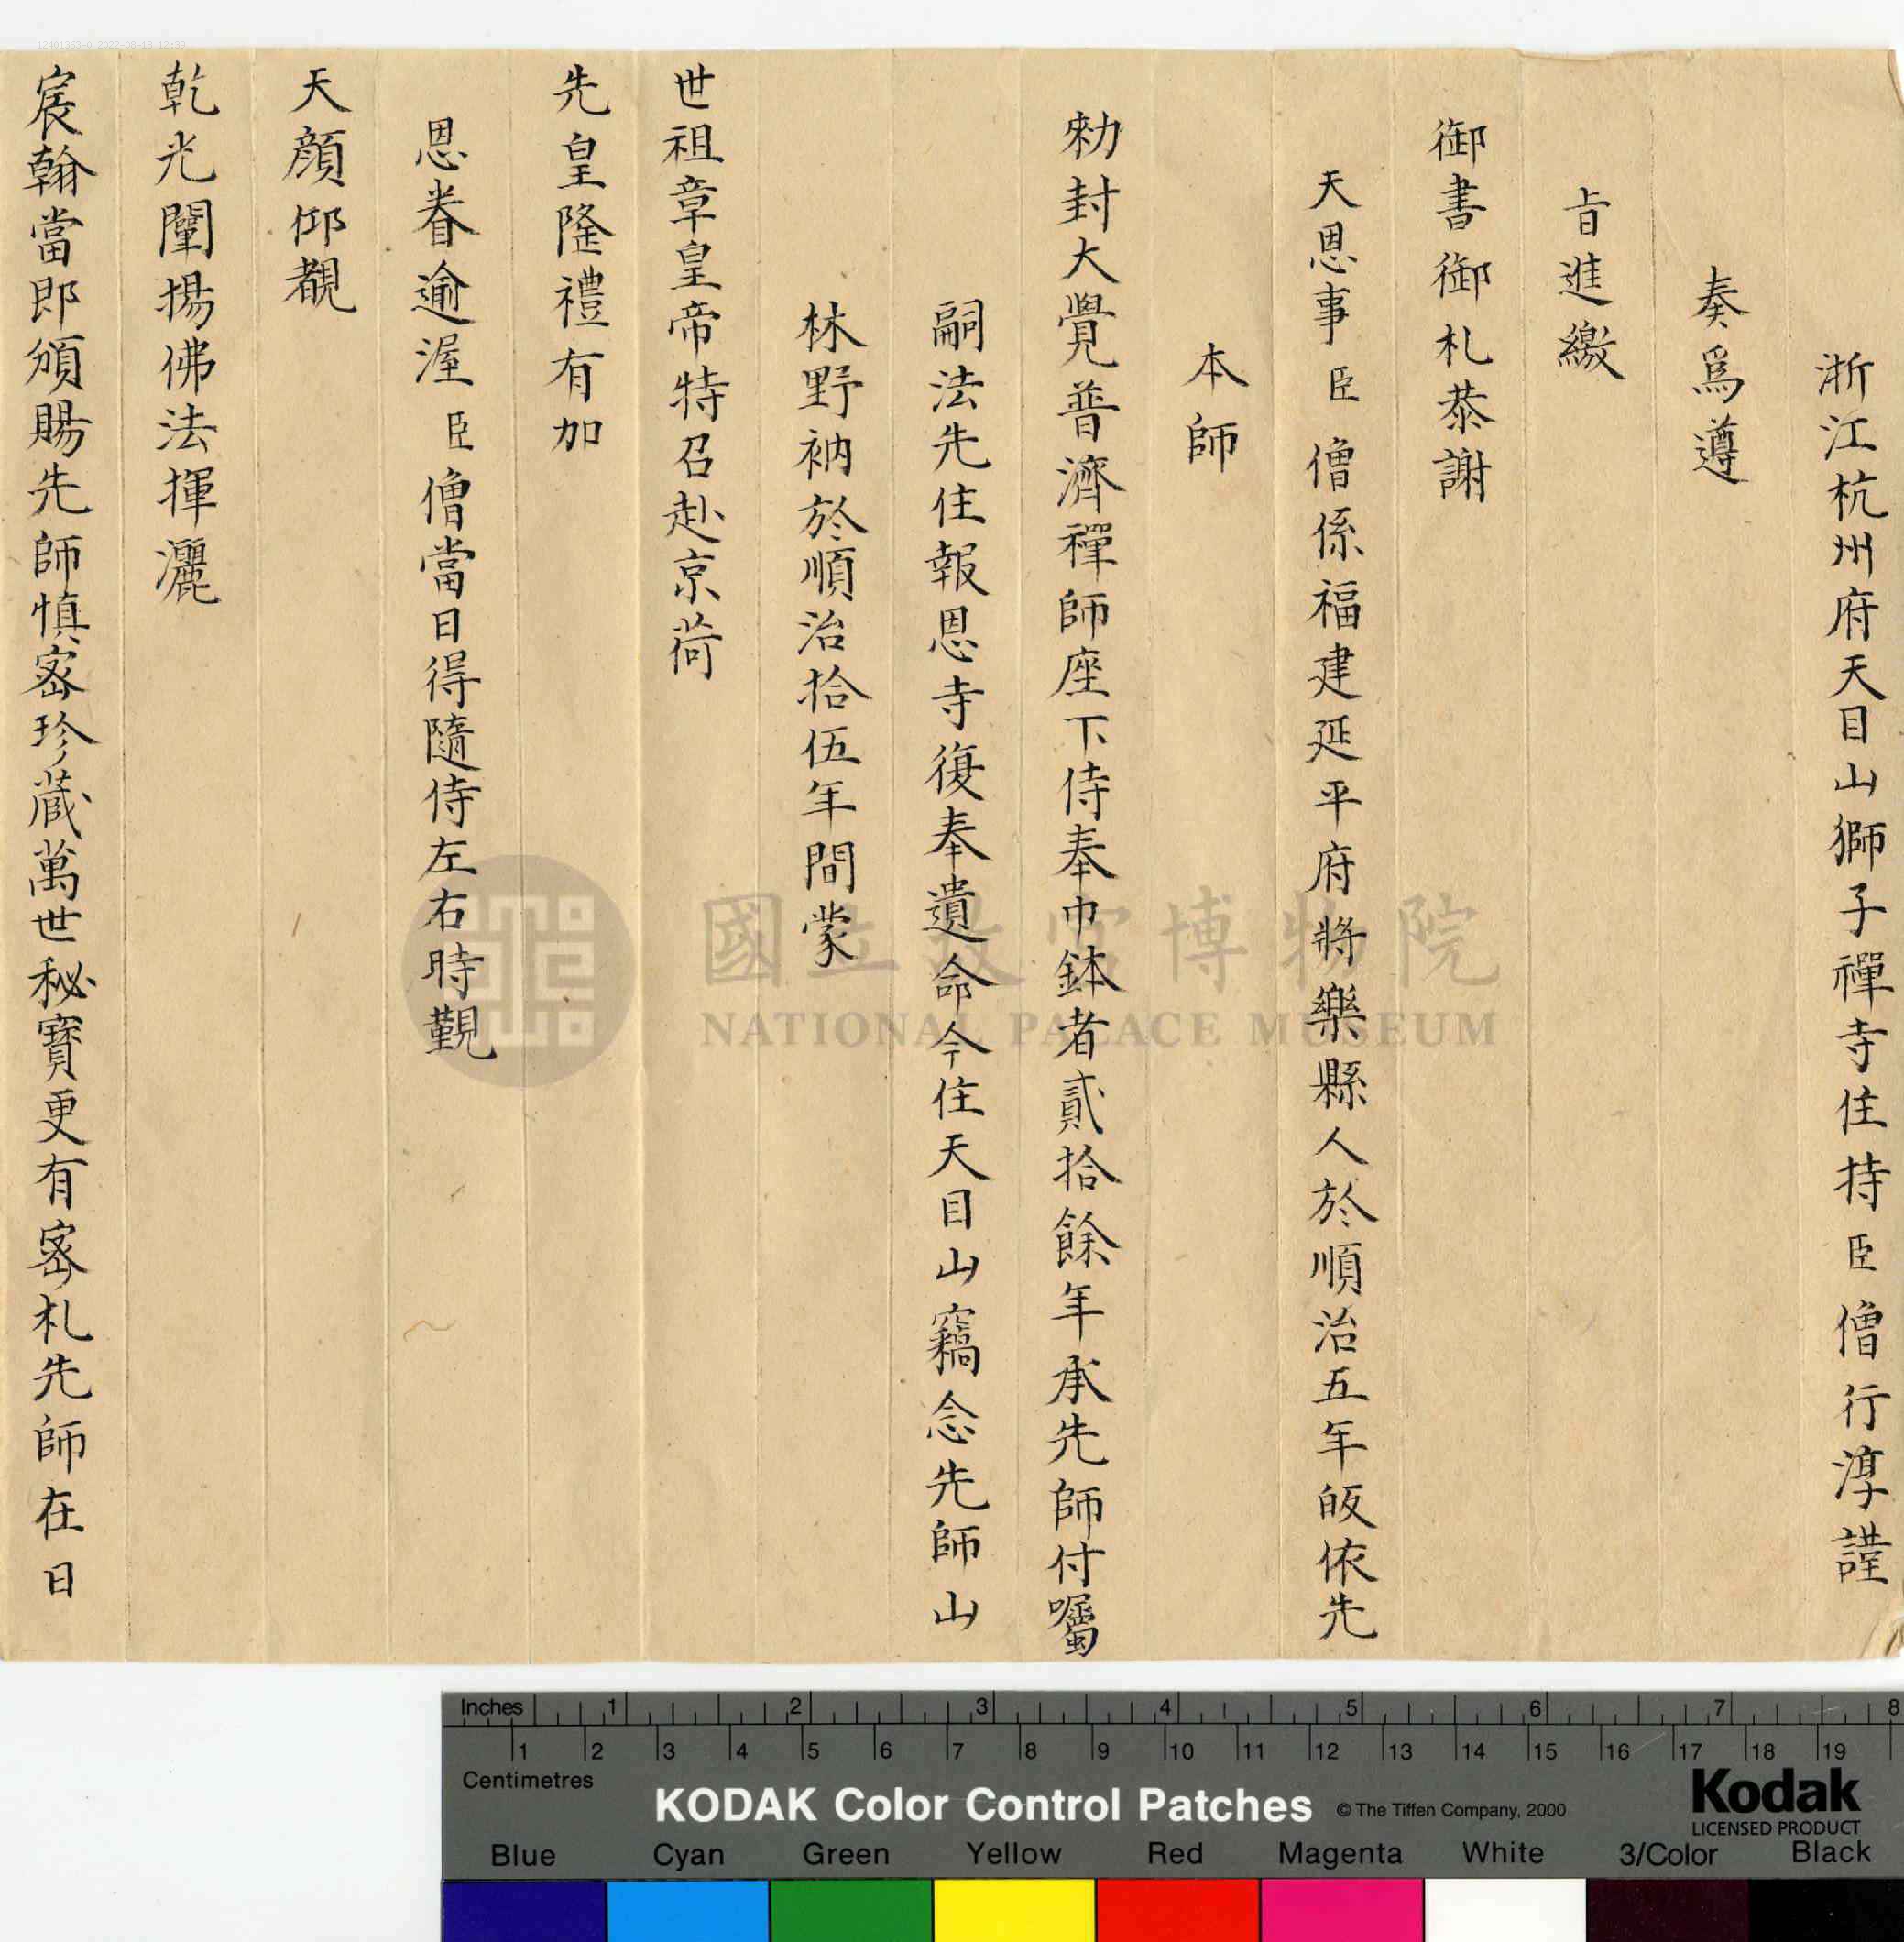 浙江杭州府天目山獅子禪寺住持臣僧行淳謹
奏爲遵
旨進繳
御書御札恭謝
天恩事臣僧係福建延平府將樂縣人於順治五年皈依先
本師
勑封大覺普濟禪師座下侍奉巾鉢者貳拾餘年承先師付囑
嗣法先住報恩寺復奉遺命今住天目山竊念先師山
林野衲於順治拾伍年間蒙
世祖章皇帝特召赴京荷
先皇隆禮有加
恩眷逾渥臣僧當日得隨侍左右時覲
天顏仰覩
乾光闡揚佛法揮灑
宸翰當即頒賜先師慎密珍藏萬世秘寶更有密札先師在日
國立故宮博物院
NATIONAL PALACE MUSEUM
12401363-0 2022-08-18 12:39
Inches 1 2 3 4 5 6 7 8
1 2 3 4 5 6 7 8 9 10 11 12 13 14 15 16 17 18 19
Centimetres
KODAK Color Control Patches © The Tiffen Company, 2000
Kodak
LICENSED PRODUCT
Blue Cyan Green Yellow Red Magenta White 3/Color Black